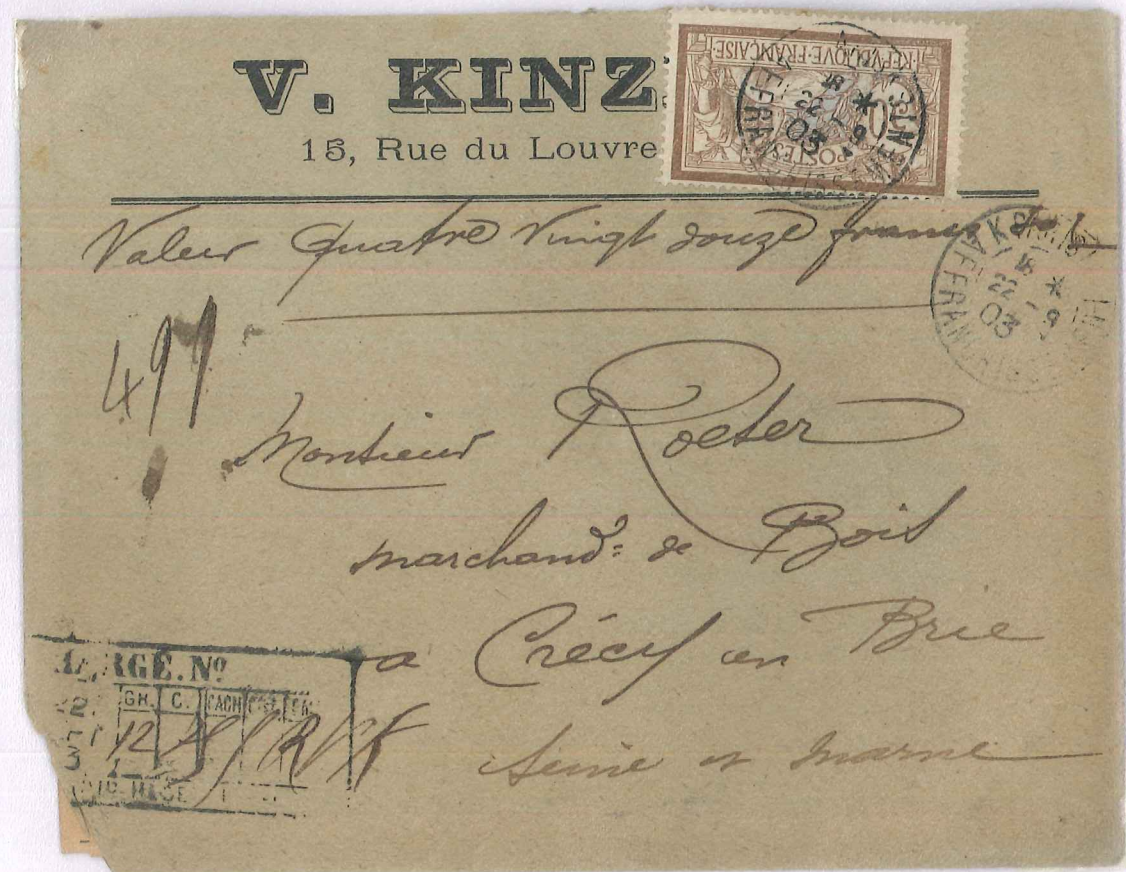 V. KINZ
15, Rue du Louvre
REPVBLIQVE·FRANÇAISE
POSTES
22 - 9
03
Valeur Quatre Vingt douze francs
22 - 9
03
497
Monsieur Roeser
marchand de Bois
a Crécy en Brie
Seine et Marne
ARGÉ. Nº
GR. C. CACH
12